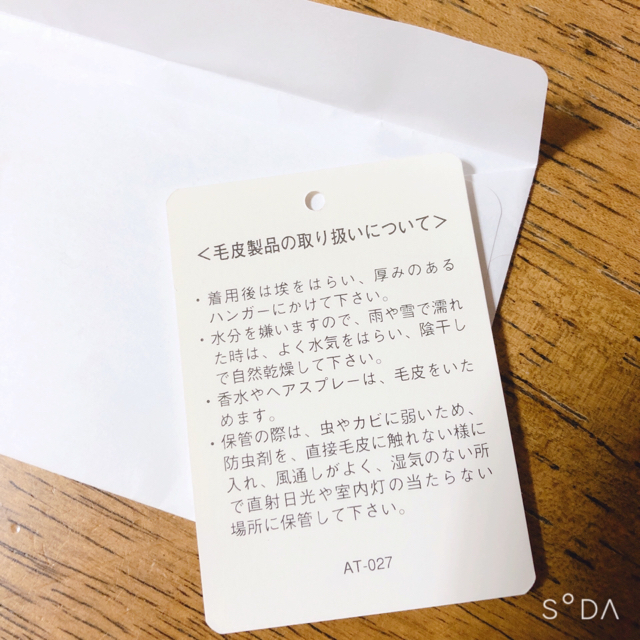 <毛皮製品の取り扱いについて>
・着用後は埃をはらい、厚みのある
ハンガーにかけて下さい。
・水分を嫌いますので、雨や雪で濡れ
た時は、よく水気をはらい、陰干し
で自然乾燥して下さい。
・香水やヘアスプレーは、毛皮をいた
めます。
・保管の際は、虫やカビに弱いため、
防虫剤を、直接毛皮に触れない様に
入れ、風通しがよく、湿気のない所
で直射日光や室内灯の当たらない
場所に保管して下さい。
AT-027
SODA